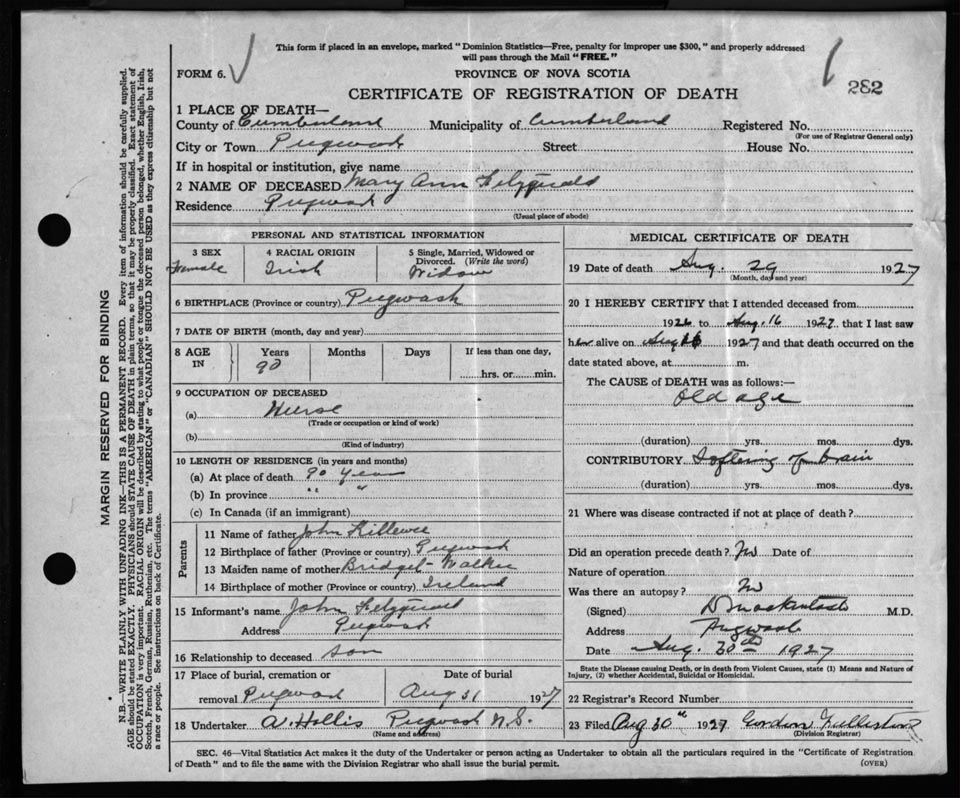 This form if placed in an envelope, marked "Dominion Statistics—Free, penalty for improper use $300," and properly addressed
will pass through the Mail "FREE."
FORM 6.
PROVINCE OF NOVA SCOTIA
282
CERTIFICATE OF REGISTRATION OF DEATH
1 PLACE OF DEATH—
County of Cumberland Municipality of Cumberland Registered No.
(For use of Registrar General only)
City or Town Pugwash Street House No.
If in hospital or institution, give name
2 NAME OF DECEASED Mary Ann Fitzgerald
Residence Pugwash
(Usual place of abode)
PERSONAL AND STATISTICAL INFORMATION
3 SEX 4 RACIAL ORIGIN 5 Single, Married, Widowed or
Divorced. (Write the word)
Female Irish Widow
6 BIRTHPLACE (Province or country) Pugwash
7 DATE OF BIRTH (month, day and year)
8 AGE IN Years Months Days If less than one day,
90 hrs. or min.
9 OCCUPATION OF DECEASED
(a) Nurse
(Trade or occupation or kind of work)
(b)
(Kind of industry)
10 LENGTH OF RESIDENCE (in years and months)
(a) At place of death 90 years
(b) In province " "
(c) In Canada (if an immigrant)
Parents
11 Name of father John
12 Birthplace of father (Province or country) Pugwash
13 Maiden name of mother Bridget Walker
14 Birthplace of mother (Province or country) Ireland
15 Informant's name John Fitzgerald
Address Pugwash
16 Relationship to deceased son
17 Place of burial, cremation or Date of burial
removal Pugwash Aug 31 1927
18 Undertaker A. Hollis Pugwash N.S.
(Name and address)
MEDICAL CERTIFICATE OF DEATH
19 Date of death Aug. 29 1927
(Month, day and year)
20 I HEREBY CERTIFY that I attended deceased from
1926 to Aug. 16 1927 that I last saw
her alive on Aug 16 1927 and that death occurred on the
date stated above, at m.
The CAUSE of DEATH was as follows:—
Old age
(duration) yrs. mos. dys.
CONTRIBUTORY Softening of brain
(duration) yrs. mos. dys.
21 Where was disease contracted if not at place of death?
Did an operation precede death? No Date of
Nature of operation
Was there an autopsy? No
(Signed) D Mackintosh M.D.
Address Pugwash
Date Aug. 30th 1927
State the Disease causing Death, or in death from Violent Causes, state (1) Means and Nature of
Injury, (2) whether Accidental, Suicidal or Homicidal.
22 Registrar's Record Number
23 Filed Aug 30th 1927 Gordon
(Division Registrar)
SEC. 46—Vital Statistics Act makes it the duty of the Undertaker or person acting as Undertaker to obtain all the particulars required in the "Certificate of Registration
of Death" and to file the same with the Division Registrar who shall issue the burial permit.
(OVER)
MARGIN RESERVED FOR BINDING
N.B.—WRITE PLAINLY WITH UNFADING INK—THIS IS A PERMANENT RECORD. Every item of information should be carefully supplied.
AGE should be stated EXACTLY. PHYSICIANS should STATE CAUSE OF DEATH in plain terms, so that it may be properly classified. Exact statement of
OCCUPATION is very important. RACIAL ORIGIN will be described by stating to what people or tongue the deceased person belonged, whether English, Irish,
Scotch, French, German, Russian, Ruthenian, etc. The terms "AMERICAN" or "CANADIAN" SHOULD NOT BE USED as they express citizenship but not
a race or people. See instructions on back of Certificate.